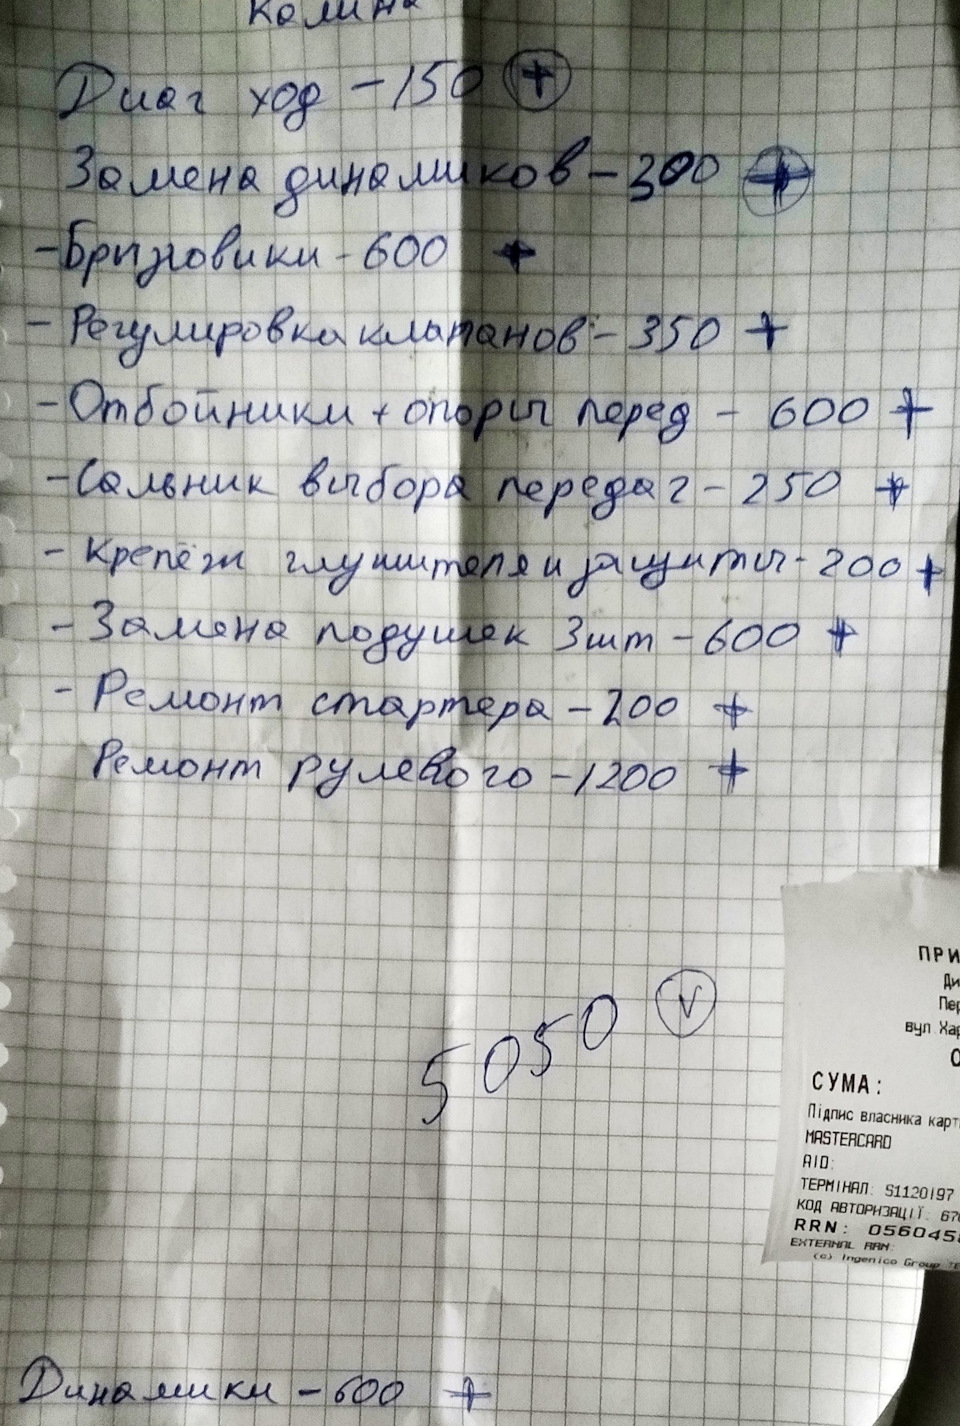 Калина
Диаг ход - 150 +
Замена динамиков - 300 +
- Брызговики - 600 +
- Регулировка клапанов - 350 +
- Отбойники + опоры перед - 600 +
- Сальник выбора передач - 250 +
- Крепёж глушителя и защиты - 200 +
- Замена подушек 3шт - 600 +
- Ремонт стартера - 200 +
Ремонт рулевого - 1200 +
5050 V
ПРИ
Ди
Пер
вул. Хар
СУМА:
Підпис власника карт
MASTERCARD
AID:
ТЕРМІНАЛ: S1120197
КОД АВТОРИЗАЦІЇ: 67
RRN: 056045
EXTERNAL RRN:
(c) Ingenico Group
Динамики - 600 +